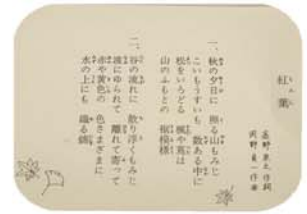 紅葉
高野辰之作詞
岡野貞一作曲
一、秋の夕日に 照る山もみじ
こいもうすいも 数ある中に
松をいろどる 楓や蔦は
山のふもとの 裾模様
二、谷の流れに 散り浮くもみじ
波にゆられて 離れて寄って
赤や黄色の 色さまざまに
水の上にも 織る錦